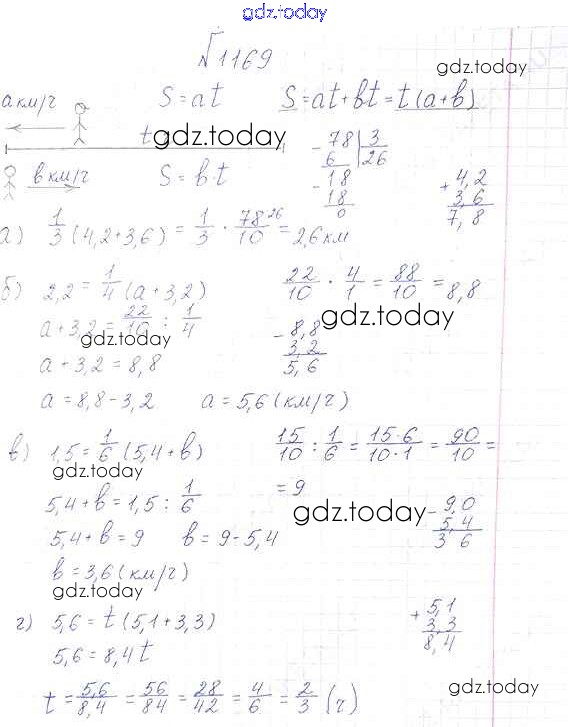 gdz.today
№1169
gdz.today
a км/ч S = at S = at + bt = t(a+b)
t
gdz.today
b км/ч S = b·t
78 | 3
6 26
- 18
18
0
+ 4,2
3,6
7,8
а) 1/3 (4,2+3,6) = 1/3 · 78 26/10 = 2,6 км
б) 2,2 = 1/4 (a + 3,2) 22/10 · 4/1 = 88/10 = 8,8
a + 3,2 = 22/10 : 1/4
gdz.today
gdz.today
- 8,8
3,2
5,6
a + 3,2 = 8,8
a = 8,8 - 3,2 a = 5,6 (км/ч)
в) 1,5 = 1/6 (5,4 + b) 15/10 : 1/6 = 15·6/10·1 = 90/10 =
gdz.today
= 9
5,4 + b = 1,5 : 1/6
gdz.today
- 9,0
5,4
3 6
5,4 + b = 9 b = 9 - 5,4
b = 3,6 (км/ч)
gdz.today
г) 5,6 = t (5,1 + 3,3)
+ 5,1
3,3
8,4
5,6 = 8,4 t
gdz.today
t = 5,6/8,4 = 56/84 = 28/42 = 4/6 = 2/3 (ч)